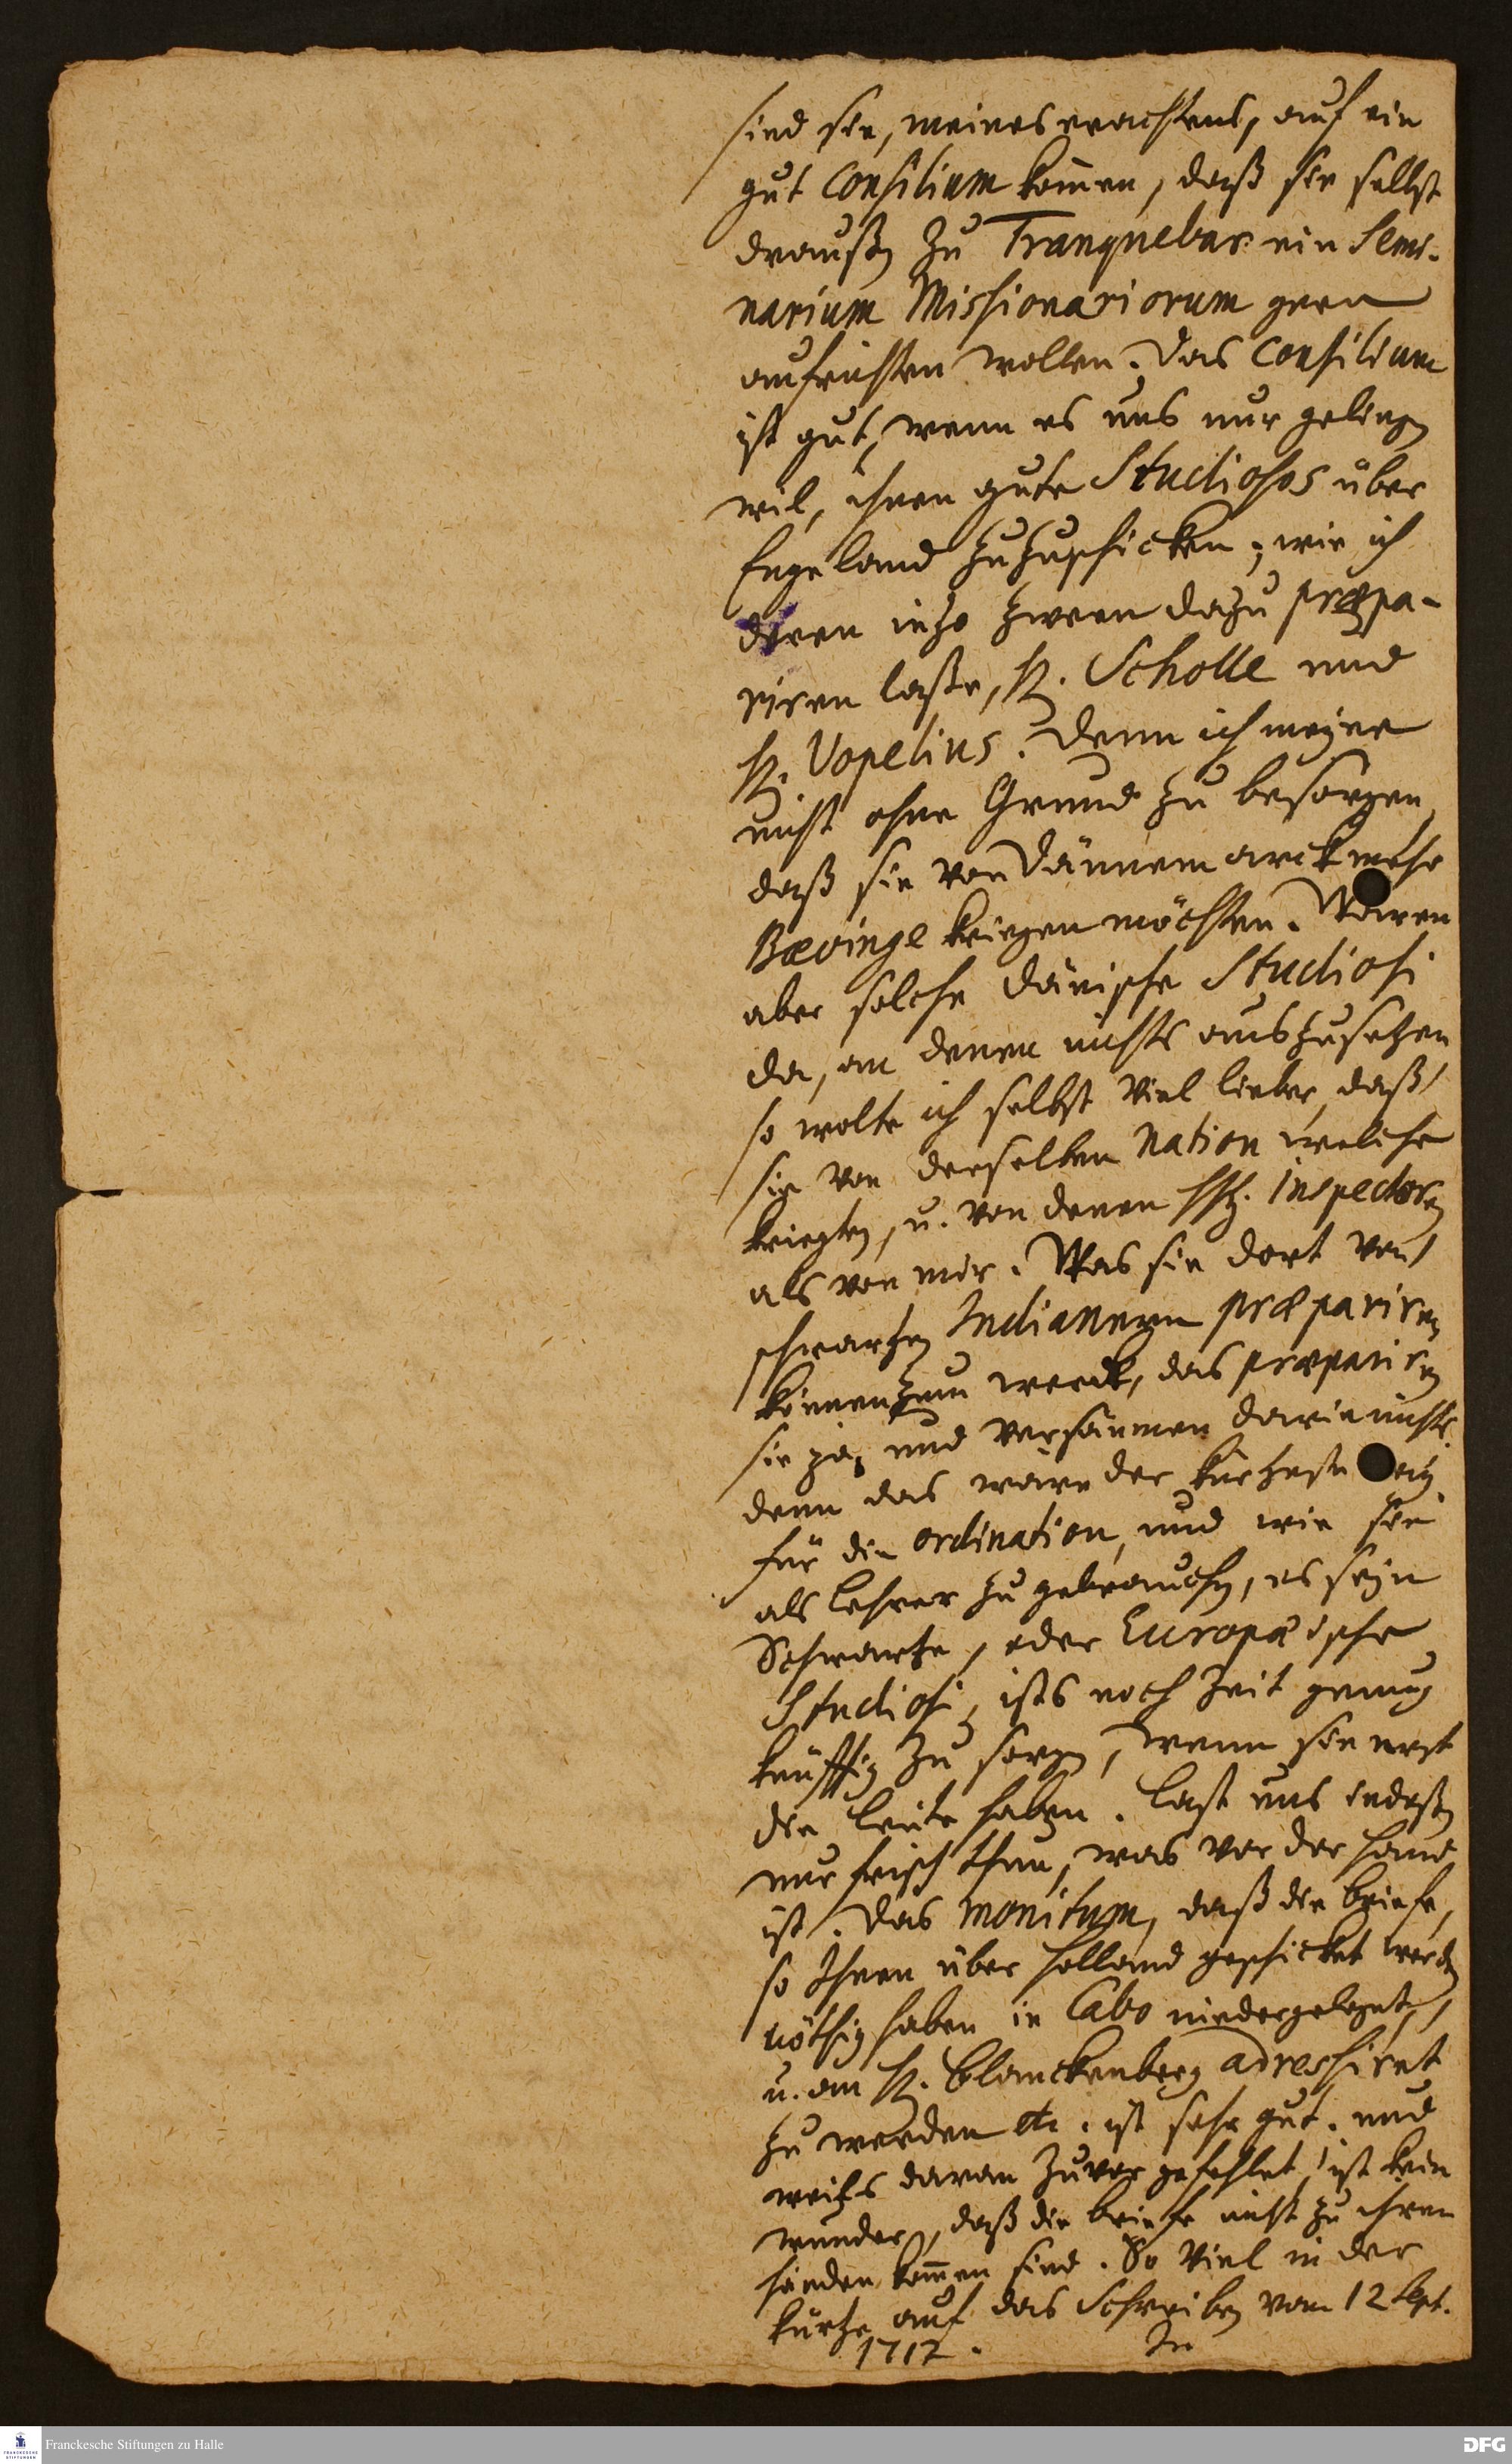 sind sie, meines erachtens, auf ein
gut Consilium kom̄en, daß sie selbst
draußen zu Tranquebar ein Semi-
narium Missionariorum gern
aufrichten wollen. Das Consilium
ist gut, wenn es uns nur gelingen
wil, ihnen gute Studiosos über
Engeland zuzuschicken; wie ich
deren ietzo zween dazu præpa-
riren laße, H. Scholle und
H. Vopelius. Denn ich meyne
nicht ohne Grund zu besorgen
daß sie von Dännemarck mehr
Bævinge kriegen möchten. Wären
aber solche dänische Studiosi
da, an denen nichts auszusetzen
so wolte ich selbst viel lieber, daß
sie von derselben Nation welche
kriegten, u. von denen HH. Inspectoren
als von mir. Was sie dort von
schwartzen Indianern præpariren
können zum werck, das præpariren
sie ja, und versäumen darin nichts.
denn das wäre der kürtzeste
für die ordination, und wie sie
als Lehrer zu gebrauchen, es seyn
Schwartze, oder Europæische
Studiosi, ists noch Zeit genug
künfftig zu sorgen, wenn sie erst
die Leute haben. Last uns indeßen
nur frisch thun, was vor der Hand
ist. Das Monitum, daß die briefe,
so Ihnen über Holland geschicket werden
nöthig haben in Cabo niedergeleget,
u. an H. Blanckenberg adressiret
zu werden etc. ist sehr gut. und
weils daran zuvor gefehlet, ist kein
wunder, daß die briefe nicht zu ihren
händen kom̄en sind. So viel in der
kürtze auf das Schreiben vom 12 Sept.
1712. In
Franckesche Stiftungen zu Halle
DFG